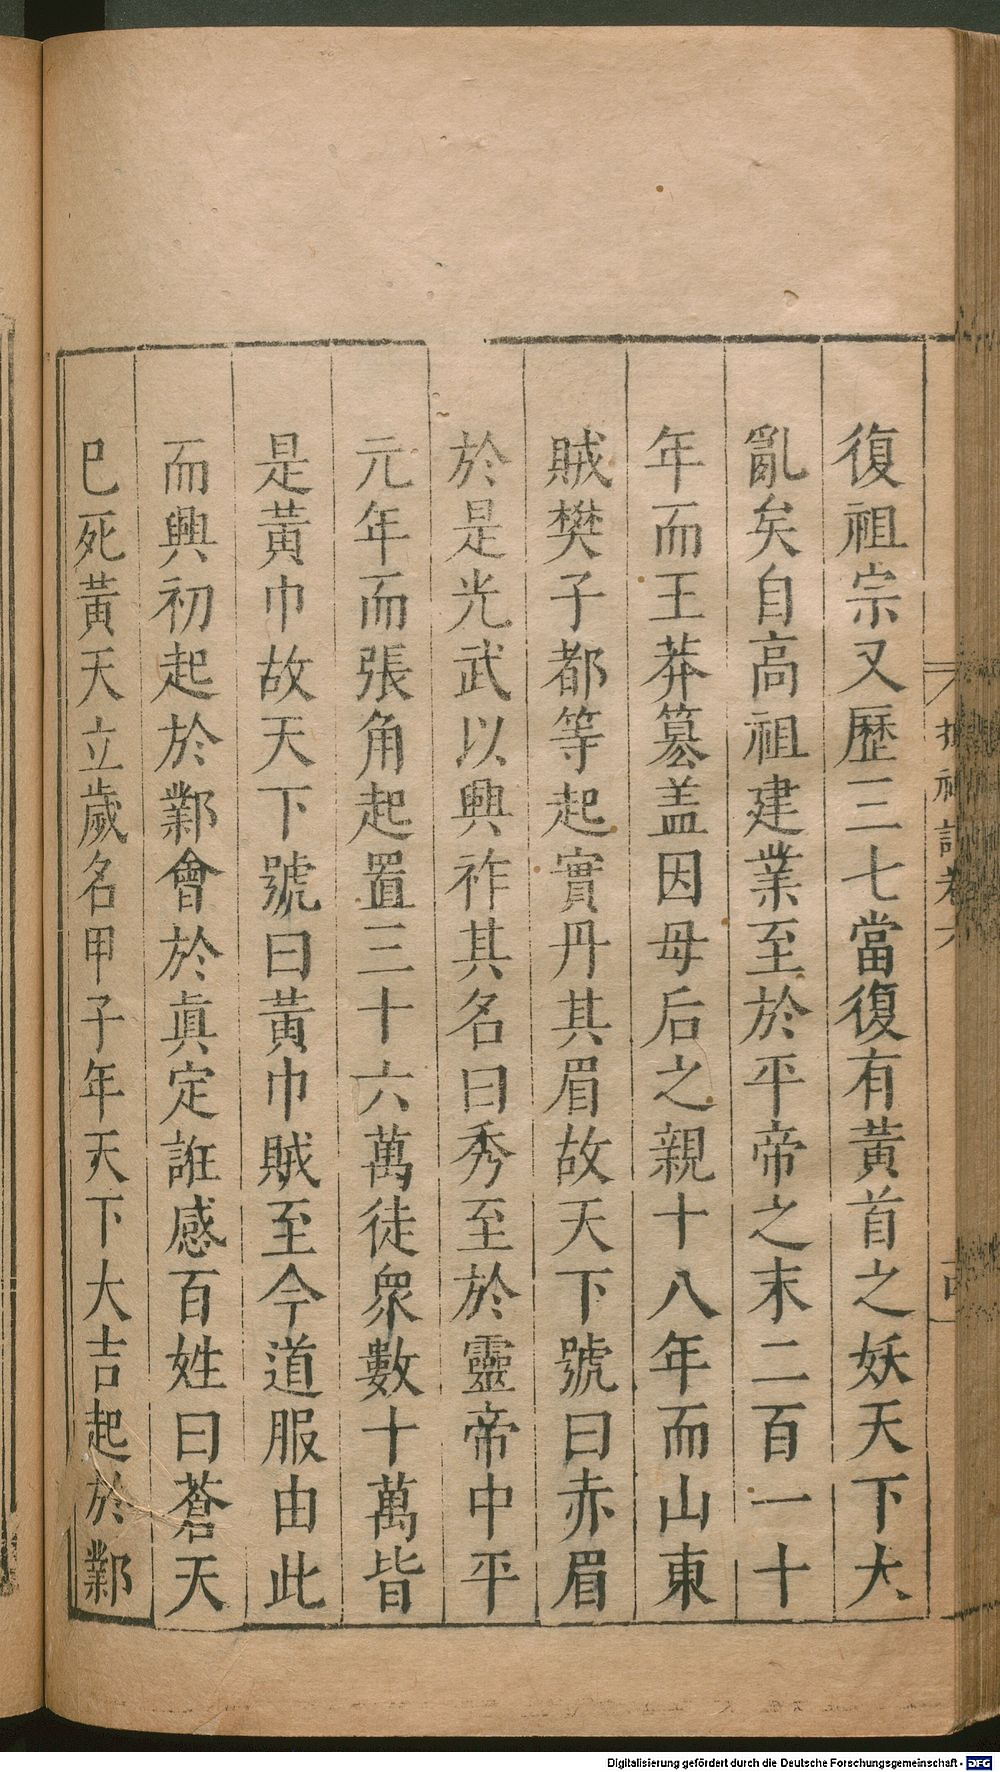 復祖宗又歷三七當復有黃首之妖天下大
亂矣自高祖建業至於平帝之末二百一十
年而王莽篡盖因母后之親十八年而山東
賊樊子都等起實丹其眉故天下號曰赤眉
於是光武以興祚其名曰秀至於靈帝中平
元年而張角起置三十六萬徒衆數十萬皆
是黃巾故天下號曰黃巾賊至今道服由此
而興初起於鄴會於眞定誑惑百姓曰蒼天
巳死黃天立歲名甲子年天下大吉起於鄴
搜神記卷六
Digitalisierung gefördert durch die Deutsche Forschungsgemeinschaft - DFG